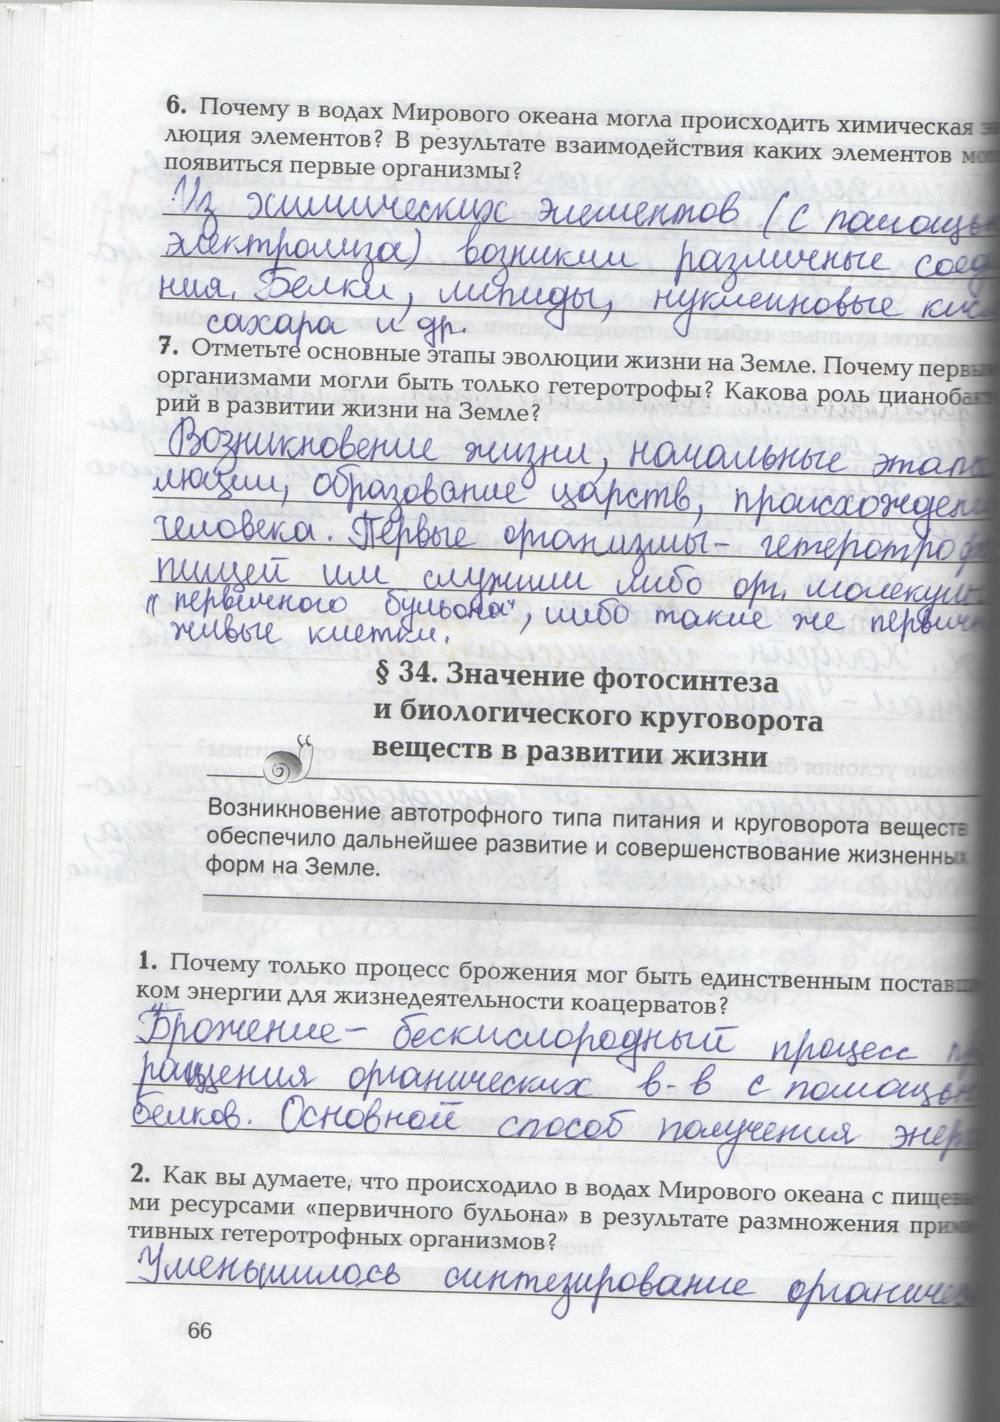 6. Почему в водах Мирового океана могла происходить химическая э
люция элементов? В результате взаимодействия каких элементов мог
появиться первые организмы?
Из химических элементов (с помощью
электролиза) возникли различные соед
ния. Белки, липиды, нуклеиновые кисл
сахара и др
7. Отметьте основные этапы эволюции жизни на Земле. Почему первым
организмами могли быть только гетеротрофы? Какова роль цианобак
рий в развитии жизни на Земле?
Возникновение жизни, начальные этапы
люции, образование царств, происхождени
человека. Первые организмы - гетеротроф
пищей им служили либо орг. молекулы
"первичного бульона", либо такие же первичн
живые клетки.
§ 34. Значение фотосинтеза
и биологического круговорота
веществ в развитии жизни
Возникновение автотрофного типа питания и круговорота веществ
обеспечило дальнейшее развитие и совершенствование жизненных
форм на Земле.
1. Почему только процесс брожения мог быть единственным поставщи
ком энергии для жизнедеятельности коацерватов?
Брожение - бескислородный процесс пр
ращения органических в-в с помощью
белков. Основной способ получения энерг
2. Как вы думаете, что происходило в водах Мирового океана с пищевы
ми ресурсами «первичного бульона» в результате размножения прими
тивных гетеротрофных организмов?
Уменьшилось синтезирование органичес
66